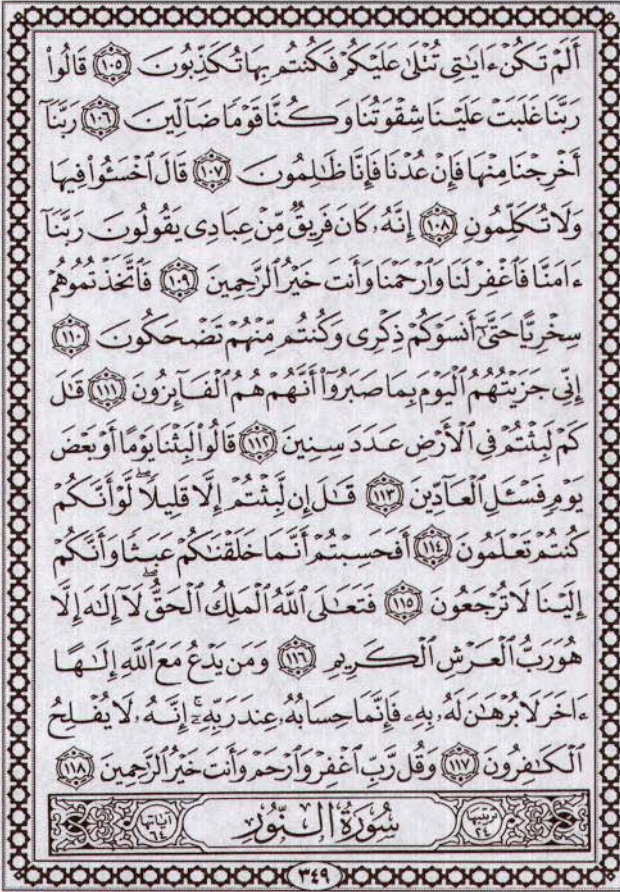 أَلَمْ تَكُنْ ءَايَٰتِى تُتْلَىٰ عَلَيْكُمْ فَكُنتُم بِهَا تُكَذِّبُونَ ١٠٥ قَالُوا۟
رَبَّنَا غَلَبَتْ عَلَيْنَا شِقْوَتُنَا وَكُنَّا قَوْمًا ضَآلِّينَ ١٠٦ رَبَّنَآ
أَخْرِجْنَا مِنْهَا فَإِنْ عُدْنَا فَإِنَّا ظَٰلِمُونَ ١٠٧ قَالَ ٱخْسَـُٔوا۟ فِيهَا
وَلَا تُكَلِّمُونِ ١٠٨ إِنَّهُۥ كَانَ فَرِيقٌ مِّنْ عِبَادِى يَقُولُونَ رَبَّنَآ
ءَامَنَّا فَٱغْفِرْ لَنَا وَٱرْحَمْنَا وَأَنتَ خَيْرُ ٱلرَّٰحِمِينَ ١٠٩ فَٱتَّخَذْتُمُوهُمْ
سِخْرِيًّا حَتَّىٰٓ أَنسَوْكُمْ ذِكْرِى وَكُنتُم مِّنْهُمْ تَضْحَكُونَ ١١٠
إِنِّى جَزَيْتُهُمُ ٱلْيَوْمَ بِمَا صَبَرُوٓا۟ أَنَّهُمْ هُمُ ٱلْفَآئِزُونَ ١١١ قَٰلَ
كَمْ لَبِثْتُمْ فِى ٱلْأَرْضِ عَدَدَ سِنِينَ ١١٢ قَالُوا۟ لَبِثْنَا يَوْمًا أَوْ بَعْضَ
يَوْمٍ فَسْـَٔلِ ٱلْعَآدِّينَ ١١٣ قَٰلَ إِن لَّبِثْتُمْ إِلَّا قَلِيلًا ۖ لَّوْ أَنَّكُمْ
كُنتُمْ تَعْلَمُونَ ١١٤ أَفَحَسِبْتُمْ أَنَّمَا خَلَقْنَٰكُمْ عَبَثًا وَأَنَّكُمْ
إِلَيْنَا لَا تُرْجَعُونَ ١١٥ فَتَعَٰلَى ٱللَّهُ ٱلْمَلِكُ ٱلْحَقُّ ۖ لَآ إِلَٰهَ إِلَّا
هُوَ رَبُّ ٱلْعَرْشِ ٱلْكَرِيمِ ١١٦ وَمَن يَدْعُ مَعَ ٱللَّهِ إِلَٰهًا
ءَاخَرَ لَا بُرْهَٰنَ لَهُۥ بِهِۦ فَإِنَّمَا حِسَابُهُۥ عِندَ رَبِّهِۦٓ ۚ إِنَّهُۥ لَا يُفْلِحُ
ٱلْكَٰفِرُونَ ١١٧ وَقُل رَّبِّ ٱغْفِرْ وَٱرْحَمْ وَأَنتَ خَيْرُ ٱلرَّٰحِمِينَ ١١٨
ترتيبها ٢٤ سُورَةُ النُّورِ آياتها ٦٤
٣٤٩